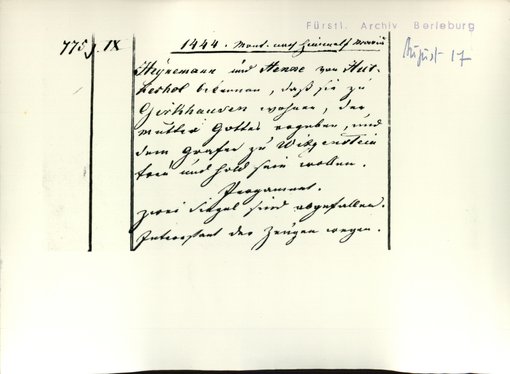 Fürstl. Archiv Berleburg
775 f. IX
1444. Mont. nach Himmelf. Mariä
August 17
Heynemann und Henne von
bekennen, daß sie zu
Girkhausen wohnen, der
Mutter Gottes ergeben, und
dem Grafen zu Witgenstein
treu und hold sein wollen.
Pergament.
Zwei Siegel sind abgefallen.
Interessant der Zeugen wegen.